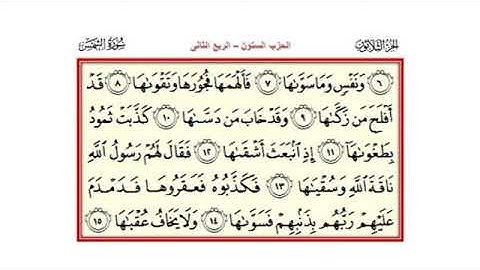 الجزء الثلاثون
الحزب الستون – الربع الثانى
سورة الشمس
٦ وَنَفْسٍ وَمَا سَوَّىٰهَا ٧ فَأَلْهَمَهَا فُجُورَهَا وَتَقْوَىٰهَا ٨ قَدْ
أَفْلَحَ مَن زَكَّىٰهَا ٩ وَقَدْ خَابَ مَن دَسَّىٰهَا ١٠ كَذَّبَتْ ثَمُودُ
بِطَغْوَىٰهَآ ١١ إِذِ ٱنۢبَعَثَ أَشْقَىٰهَا ١٢ فَقَالَ لَهُمْ رَسُولُ ٱللَّهِ
نَاقَةَ ٱللَّهِ وَسُقْيَـٰهَا ١٣ فَكَذَّبُوهُ فَعَقَرُوهَا فَدَمْدَمَ
عَلَيْهِمْ رَبُّهُم بِذَنۢبِهِمْ فَسَوَّىٰهَا ١٤ وَلَا يَخَافُ عُقْبَـٰهَا ١٥